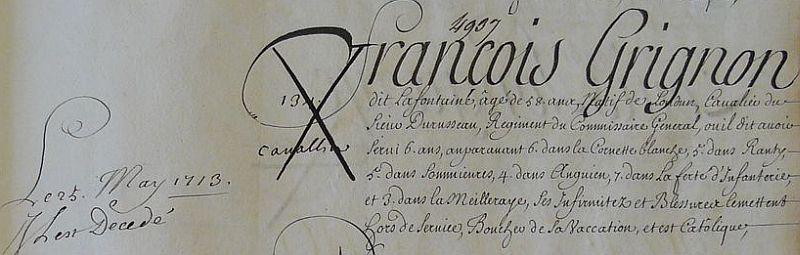 4907
François Grignon
134.
cavallier
dit Lafontaine, âgé de 58. ans, Natif de Loudun, Cavalier du
Sieur Durusseau, Regiment du Commissaire General, ou il dit avoir
servi 6. ans, auparavant 6. dans la Cornette blanche, 5. dans Ranty,
5. dans Sommieres, 4. dans Anguien, 7. dans La ferté d'Infanterie,
et 3. dans la Meilleraye, Ses Infirmitez et Blessures le mettent
hors de service, Boucher de sa Vaccation, et est Catolique,
Le 25. May 1713.
Il est Decedé